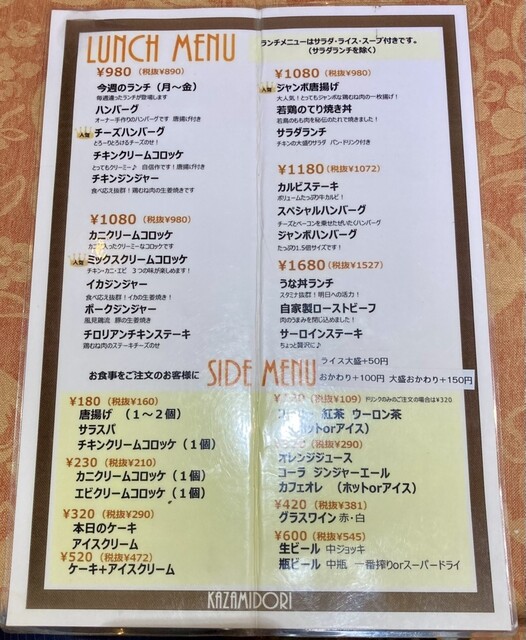 LUNCH MENU
ランチメニューはサラダ・ライス・スープ付きです。
(サラダランチを除く)
¥980 (税抜¥890)
今週のランチ(月〜金)
毎週違ったランチが登場します
ハンバーグ
オーナー手作りのハンバーグです 唐揚げ付き
人気
チーズハンバーグ
とろ〜りとろけるチーズのせ!
チキンクリームコロッケ
とってもクリーミー♪ 自信作です!唐揚げ付き
チキンジンジャー
食べ応え抜群!鶏むね肉の生姜焼きです
¥1080 (税抜¥980)
カニクリームコロッケ
入ったクリーミーなコロッケです
人気
ミックスクリームコロッケ
チキン・カニ・エビ 3つの味が楽しめます!
イカジンジャー
食べ応え抜群!イカの生姜焼き!
ポークジンジャー
風見鶏流 豚の生姜焼き
チロリアンチキンステーキ
鶏むね肉のステーキチーズのせ
¥1080 (税抜¥980)
人気
ジャンボ唐揚げ
大人気!とってもジャンボな鶏むね肉の一枚揚げ!
若鶏のてり焼き丼
若鳥のもも肉を秘伝のたれで焼きました!
サラダランチ
チキンの大盛りサラダ パン・ドリンク付き
¥1180 (税抜¥1072)
カルビステーキ
ボリュームたっぷり牛カルビ!
スペシャルハンバーグ
チーズとベーコンを乗せたぜいたくハンバーグ
ジャンボハンバーグ
たっぷり1.5倍サイズです!
¥1680 (税抜¥1527)
うな丼ランチ
スタミナ抜群!明日への活力!
自家製ローストビーフ
肉のうまみを閉じ込めました!
サーロインステーキ
ちょっと贅沢に♪
ライス大盛+50円
おかわり+100円 大盛おかわり+150円
お食事をご注文のお客様に
SIDE MENU
¥180 (税抜¥160)
唐揚げ (1〜2個)
サラスパ
チキンクリームコロッケ(1個)
¥230 (税抜¥210)
カニクリームコロッケ(1個)
エビクリームコロッケ(1個)
¥320 (税抜¥290)
本日のケーキ
アイスクリーム
¥520 (税抜¥472)
ケーキ+アイスクリーム
(税抜¥109) ドリンクのみのご注文の場合は¥320
紅茶 ウーロン茶
ホットorアイス)
(税抜¥290)
オレンジジュース
コーラ ジンジャーエール
カフェオレ (ホットorアイス)
¥420 (税抜¥381)
グラスワイン 赤・白
¥600 (税抜¥545)
生ビール 中ジョッキ
瓶ビール 中瓶 一番搾りorスーパードライ
KAZAMIDORI